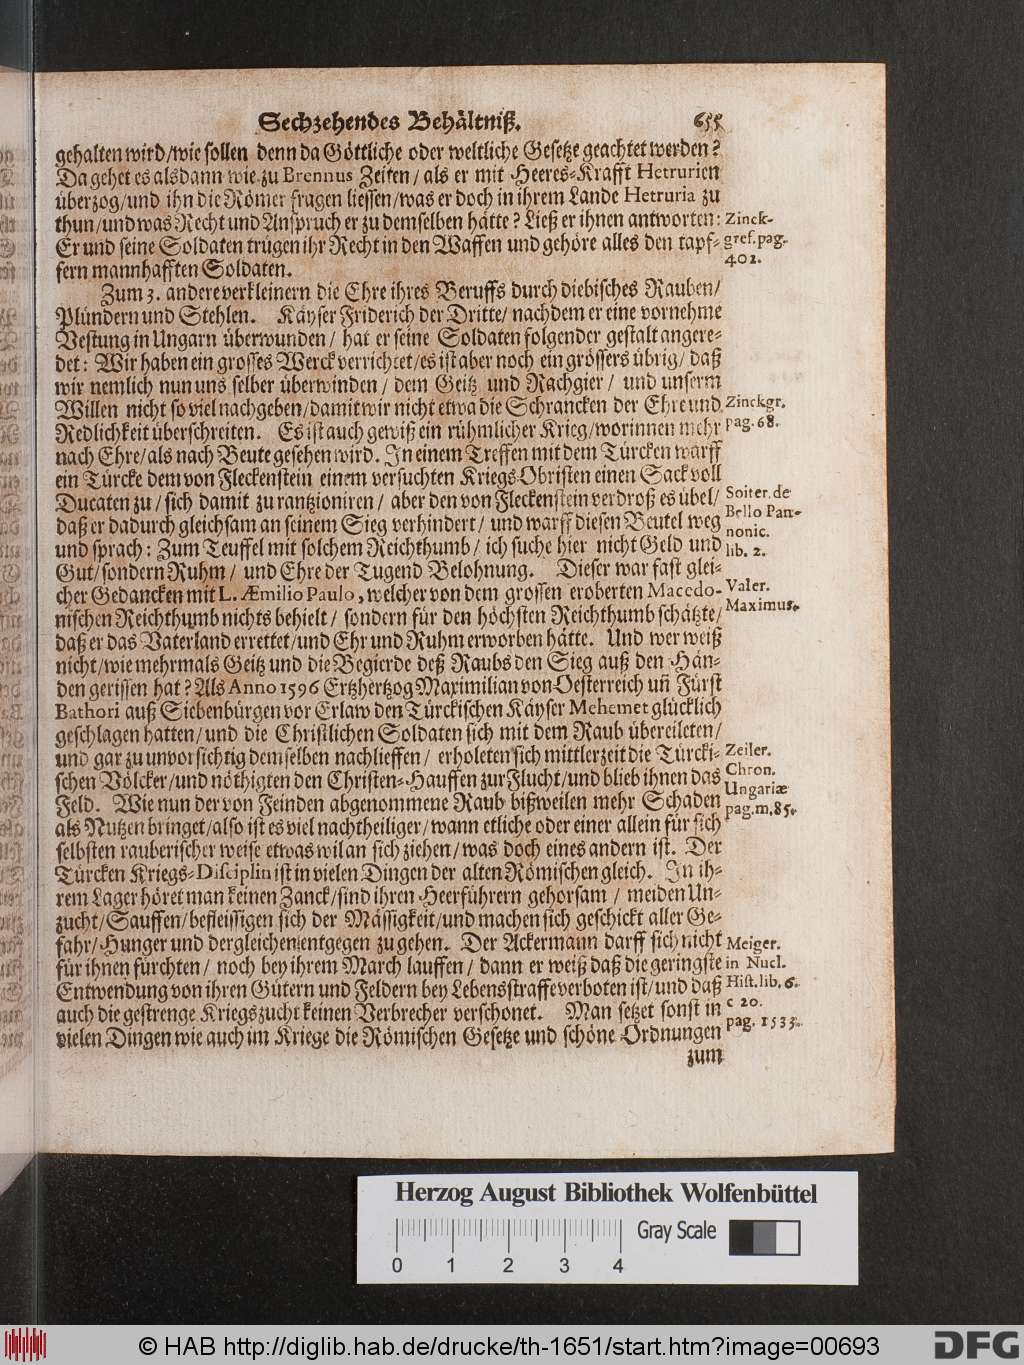 Sechzehendes Behältniß. 655
gehalten wird/wie sollen denn da Göttliche oder weltliche Gesetze geachtet werden?
Da gehet es alsdann wie zu Brennus Zeiten/als er mit Heeres-Krafft Hetrurien
überzog/und ihn die Römer fragen liessen/was er doch in ihrem Lande Hetruria zu
thun/und was Recht und Anspruch er zu demselben hätte? Ließ er ihnen antworten:
Er und seine Soldaten trügen ihr Recht in den Waffen und gehöre alles den tapf-
fern mannhafften Soldaten.
Zinck-
gref. pag.
402.
Zum 3. andere verkleinern die Ehre ihres Beruffs durch diebisches Rauben/
Plündern und Stehlen. Käyser Friderich der Dritte/nachdem er eine vornehme
Vestung in Ungarn überwunden/hat er seine Soldaten folgender gestalt angere-
det: Wir haben ein grosses Werck verrichtet/es ist aber noch ein grössers übrig/daß
wir nemlich nun uns selber überwinden/dem Geitz und Rachgier/und unserm
Willen nicht so viel nachgeben/damit wir nicht etwa die Schrancken der Ehre und
Redlichkeit überschreiten. Es ist auch gewiß ein rühmlicher Krieg/worinnen mehr
nach Ehre/als nach Beute gesehen wird. In einem Treffen mit dem Türcken warff
Zinckgr.
pag. 68.
ein Türcke dem von Fleckenstein einem versuchten Kriegs-Obristen einen Sack voll
Ducaten zu/sich damit zu rantzioniren/aber den von Fleckenstein verdroß es übel/
daß er dadurch gleichsam an seinem Sieg verhindert/und warff diesen Beutel weg
und sprach: Zum Teuffel mit solchem Reichthumb/ich suche hier nicht Geld und
Gut/sondern Ruhm/und Ehre der Tugend Belohnung. Dieser war fast glei-
Soiter. de
Bello Pan-
nonic.
lib. 2.
cher Gedancken mit L. Æmilio Paulo, welcher von dem grossen eroberten Macedo-
nischen Reichthumb nichts behielt/sondern für den höchsten Reichthumb schätzte/
daß er das Vaterland errettet/und Ehr und Ruhm erworben hätte. Und wer weiß
Valer.
Maximus.
nicht/wie mehrmals Geitz und die Begierde deß Raubs den Sieg auß den Hän-
den gerissen hat? Als Anno 1596 Ertzhertzog Maximilian von Oesterreich uñ Fürst
Bathori auß Siebenbürgen vor Erlaw den Türckischen Käyser Mehemet glücklich
geschlagen hatten/und die Christlichen Soldaten sich mit dem Raub übereileten/
und gar zu unvorsichtig demselben nachlieffen/erholeten sich mittlerzeit die Türcki-
schen Völcker/und nöthigten den Christen-Hauffen zur Flucht/und blieb ihnen das
Feld. Wie nun der von Feinden abgenommene Raub bißweilen mehr Schaden
als Nutzen bringet/also ist es viel nachtheiliger/wann etliche oder einer allein für sich
Zeiler.
Chron.
Ungariæ
pag. m. 85.
selbsten rauberischer weise etwas wil an sich ziehen/was doch eines andern ist. Der
Türcken Kriegs-Disciplin ist in vielen Dingen der alten Römischen gleich. In ih-
rem Lager höret man keinen Zanck/sind ihren Heerführern gehorsam/meiden Un-
zucht/Sauffen/befleissigen sich der Mässigkeit/und machen sich geschickt aller Ge-
fahr/Hunger und dergleichen entgegen zu gehen. Der Ackermann darff sich nicht
für ihnen fürchten/noch bey ihrem March lauffen/dann er weiß daß die geringste
Entwendung von ihren Gütern und Feldern bey Lebensstraffe verboten ist/und daß
auch die gestrenge Kriegszucht keinen Verbrecher verschonet. Man setzet sonst in
vielen Dingen wie auch im Kriege die Römischen Gesetze und schöne Ordnungen
Meiger.
in Nucl.
Hist. lib. 6.
c 20.
pag. 1533.
zum
Herzog August Bibliothek Wolfenbüttel
Gray Scale
0 1 2 3 4
© HAB http://diglib.hab.de/drucke/th-1651/start.htm?image=00693
DFG